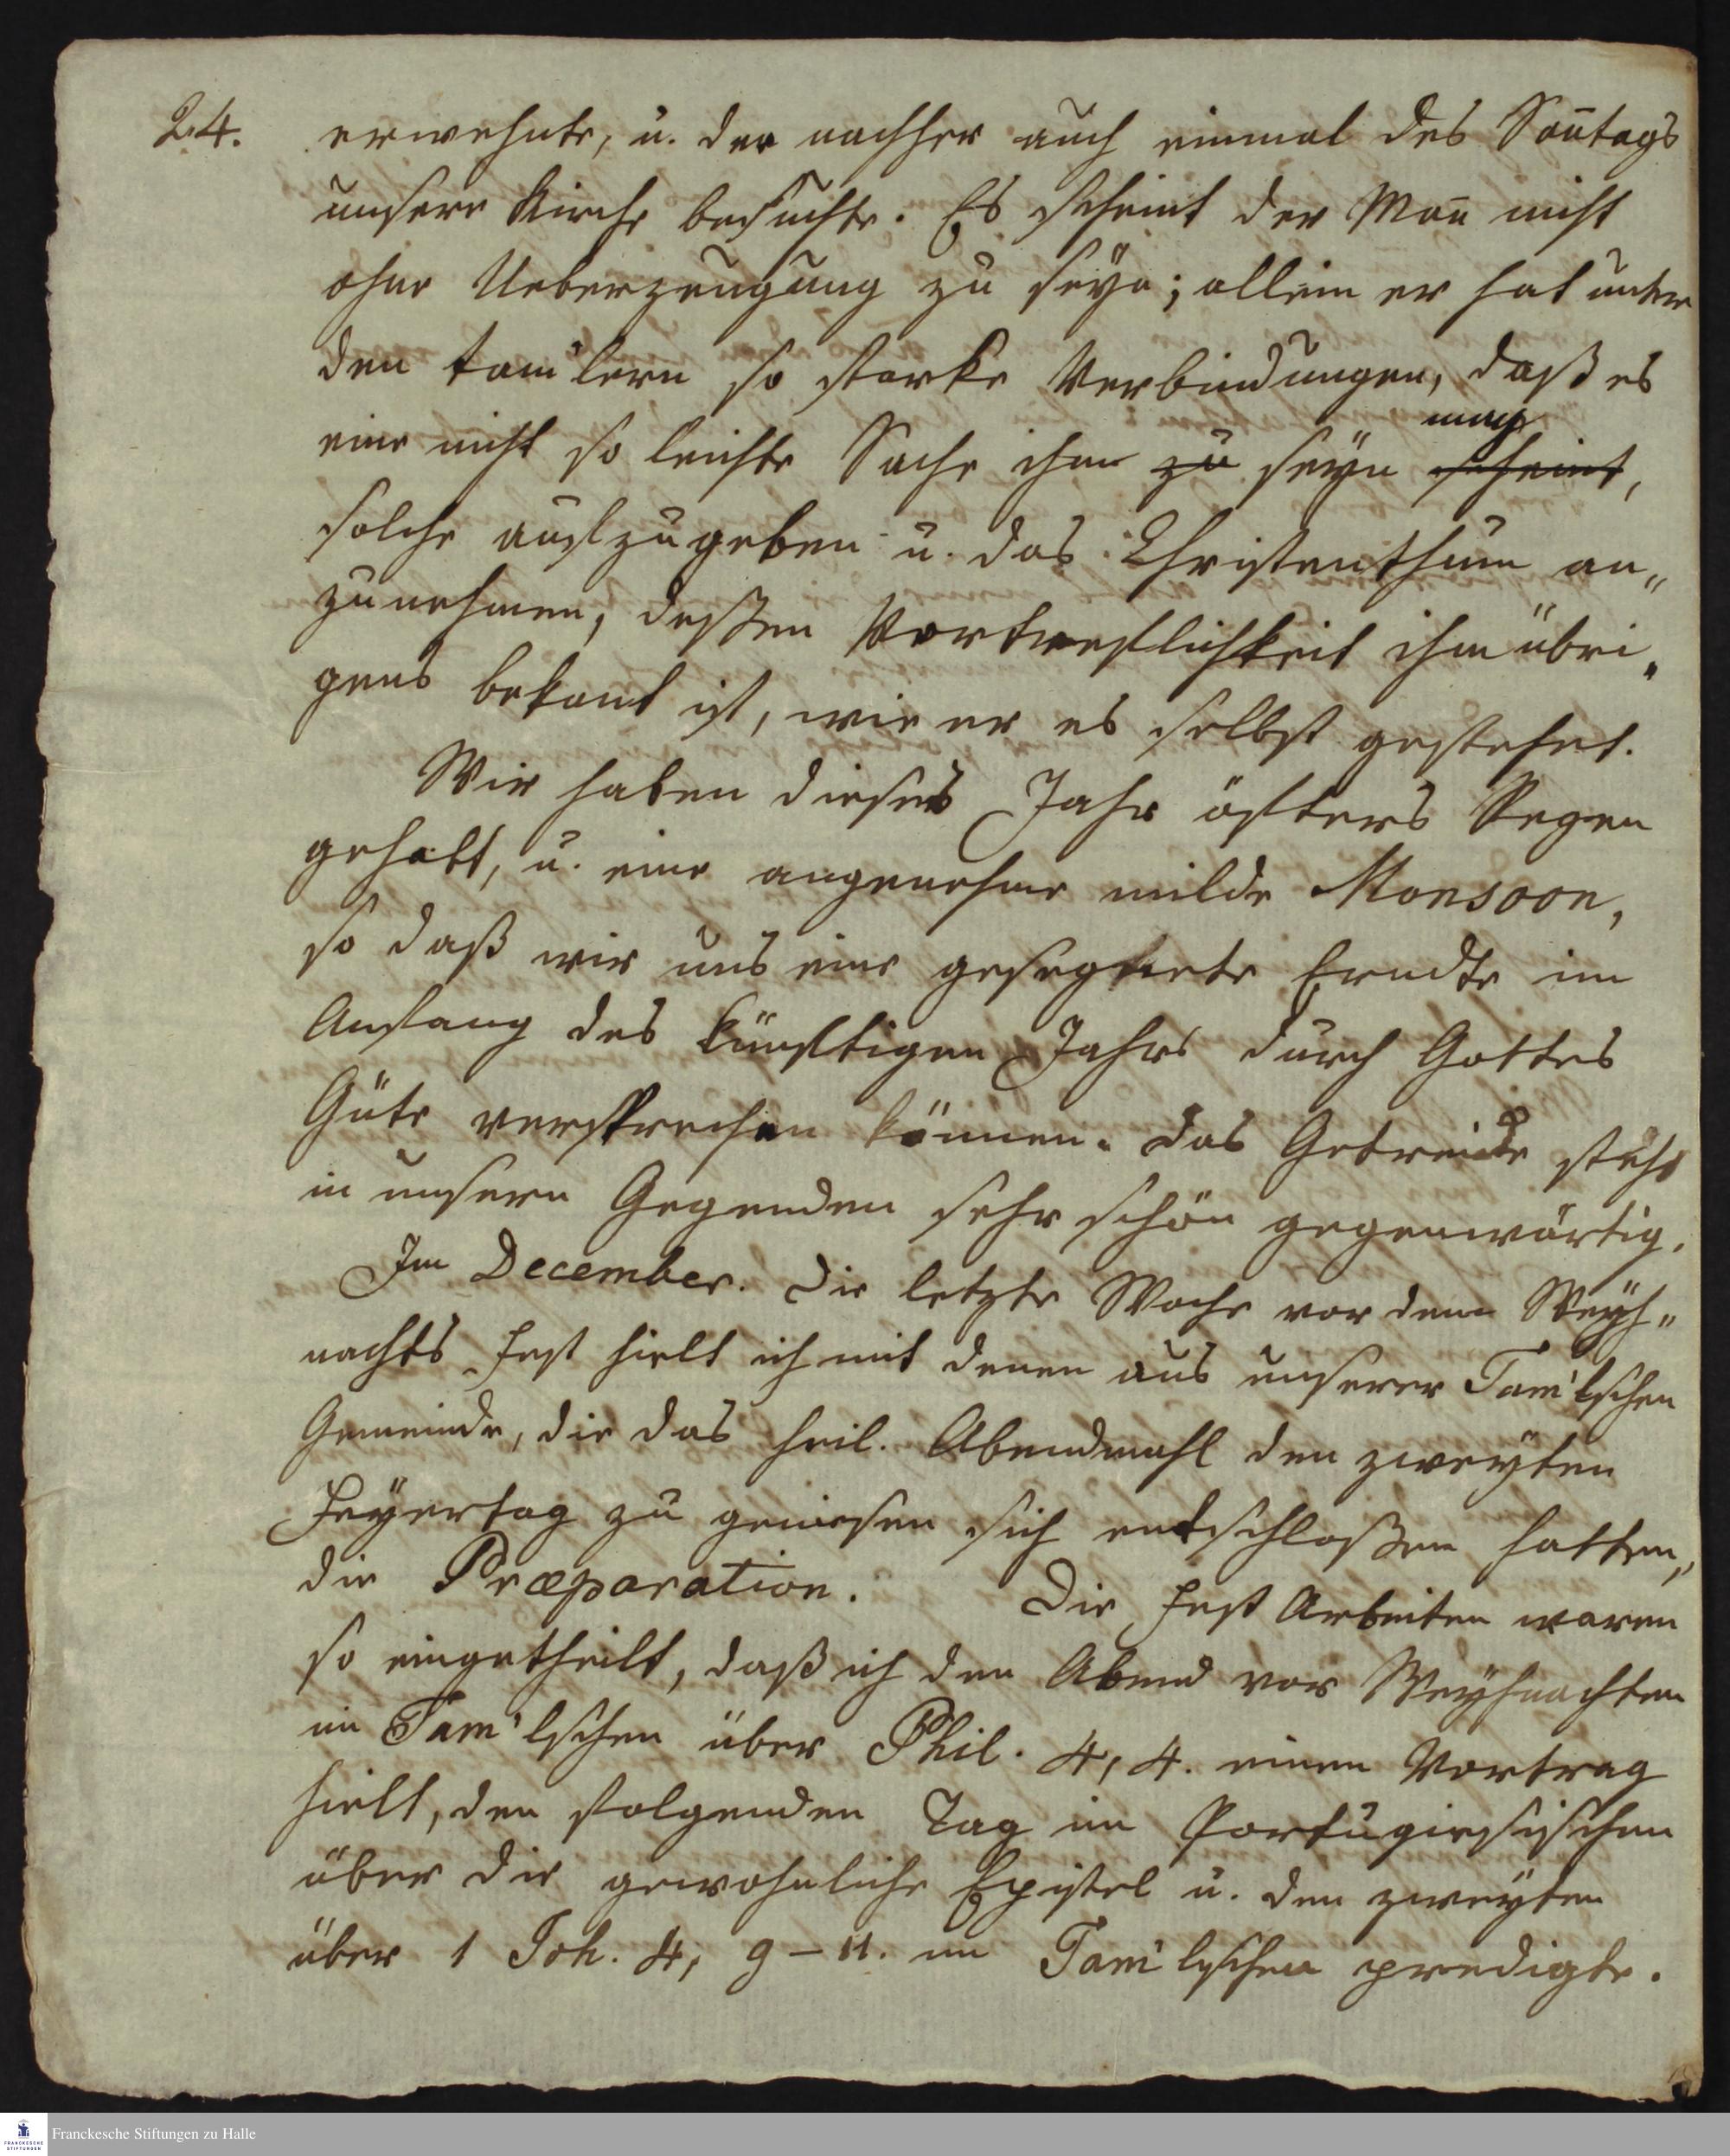 24. erwehnte, u. der nachher auch einmal des Son̄tags
unsere Kirche besuchte. Es scheint der Man̄ nicht
ohne Ueberzeugung zu seyn; allein er hat unter
den tamulern so starke Verbindungen, daß es
eine nicht so leichte Sache ihm zu seyn scheint, mag
solche aufzugeben u. das Christenthum an„
zunehmen, deßen Vortreflichkeit ihm übri„
gens bekant ist, wie er es selbst gestehet.
Wir haben dieses Jahr öfters Regen
gehabt, u. eine angenehme milde Monsoon,
so daß wir uns eine gesegnete Erndte im
Anfang des künftigen Jahrs durch Gottes
Güte versprechen können. Das Getreide steht
in unsern Gegenden sehr schön gegenwärtig.
Im December. Die letzte Woche vor dem Weyh„
nachts Fest hielt ich mit denen aus unserer Tam'lschen
Gemeinde, die das heil. Abendmahl den zweyten
Feyertag zu geniesen sich entschloßen hatten,
die Præparation. Die Fest Arbeiten waren
so eingetheilt, daß ich den Abend vor Weyhnachten
im Tam'lschen über Phil. 4, 4. einen Vortrag
hielt, den folgenden Tag im Portugiesischen
über die gewohnliche Epistel u. den zweyten
über 1 Joh. 4, 9–11. im Tam'lschen predigte.
Franckesche Stiftungen zu Halle